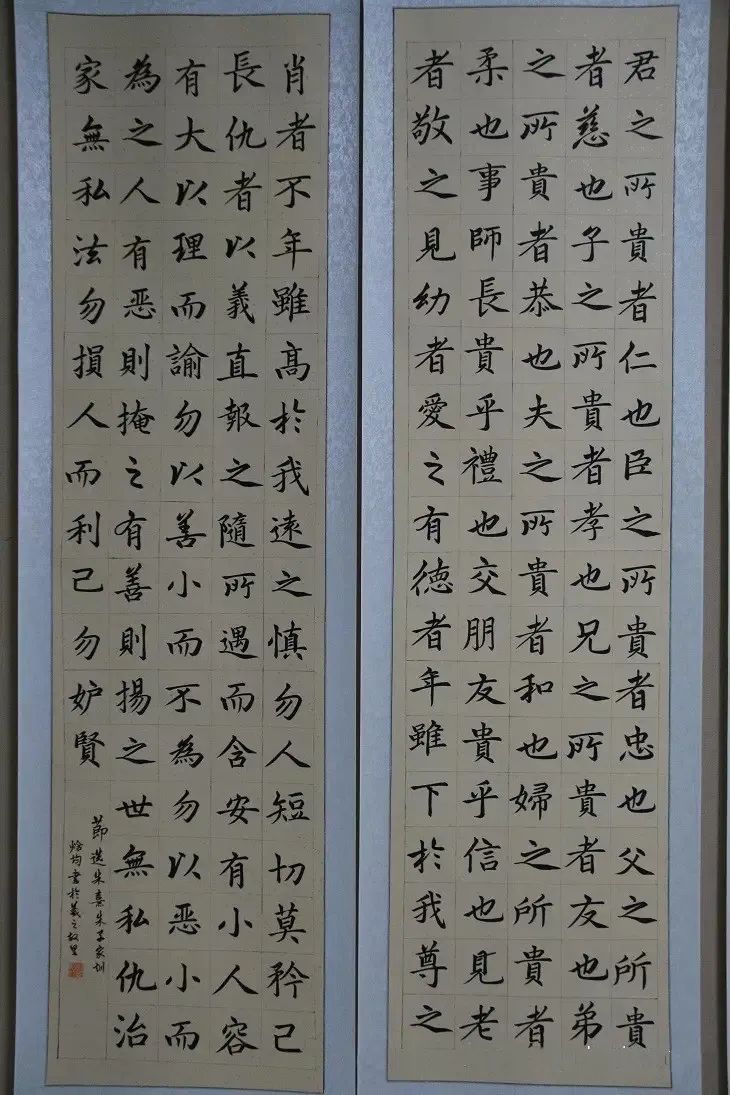 君之所貴者仁也臣之所貴者忠也父之所貴
者慈也子之所貴者孝也兄之所貴者友也弟
之所貴者恭也夫之所貴者和也婦之所貴者
柔也事師長貴乎禮也交朋友貴乎信也見老
者敬之見幼者愛之有徳者年雖下於我尊之
肖者不年雖高於我遠之慎勿人短切莫矜己
長仇者以義直報之隨所遇而含安有小人容
有大以理而諭勿以善小而不為勿以恶小而
為之人有恶則掩之有善則揚之世無私仇治
家無私法勿損人而利己勿妒賢
節選朱熹朱子家訓
均書於羲之故里